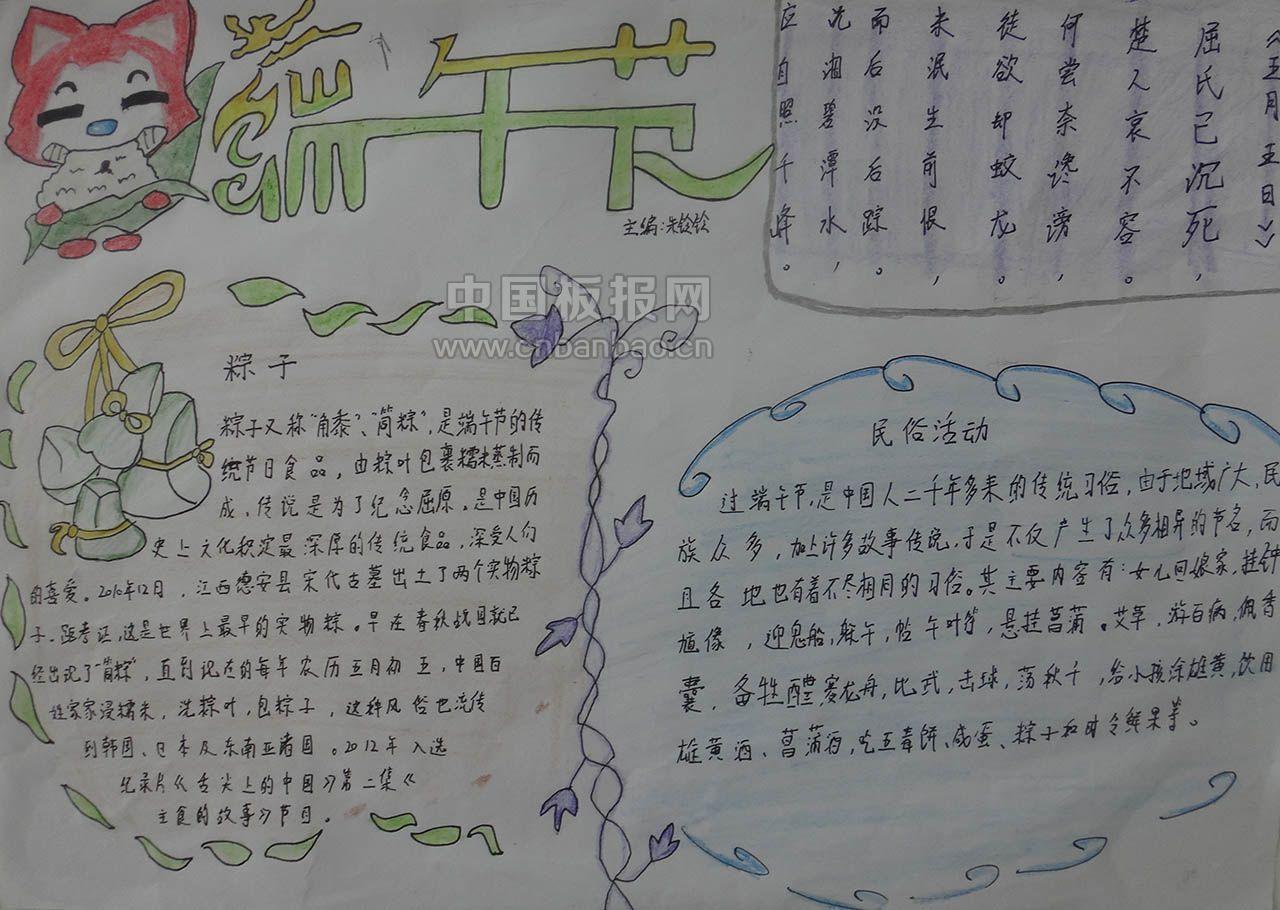 端午节
主编:朱铃铃
《五月五日》
屈氏已沉死，
楚人哀不容。
何尝奈谗谤，
徒欲却蛟龙。
未泯生前恨，
而后没后踪。
沉湘碧潭水，
应自照千峰。
中国板报网
www.cnbanbao.cn
粽子
粽子又称"角黍"、"筒粽"，是端午节的传
统节日食品，由粽叶包裹糯米蒸制而
成，传说是为了纪念屈原。是中国历
史上文化积淀最深厚的传统食品，深受人们
的喜爱。2010年12月，江西德安县宋代古墓出土了两个实物粽
子.经考证，这是世界上最早的实物粽。早在春秋战国就已
经出现了"筒粽"，直到现在的每年农历五月初五，中国百
姓家家浸糯米，洗粽叶，包粽子，这种风俗也流传
到韩国、日本及东南亚诸国。2012年入选
纪录片《舌尖上的中国》第二集《
主食的故事》节目。
民俗活动
过端午节，是中国人二千年多来的传统习俗，由于地域广大，民
族众多，加上许多故事传说，于是不仅产生了众多相异的节名，而
且各地也有着不尽相同的习俗。其主要内容有：女儿回娘家，挂钟
馗像，迎鬼船，躲午，帖午叶符，悬挂菖蒲。艾草，游百病，佩香
囊，备牲醴赛龙舟，比武，击球，荡秋千，给小孩涂雄黄，饮用
雄黄酒、菖蒲酒，吃五毒饼、咸蛋、粽子和时令鲜果等。